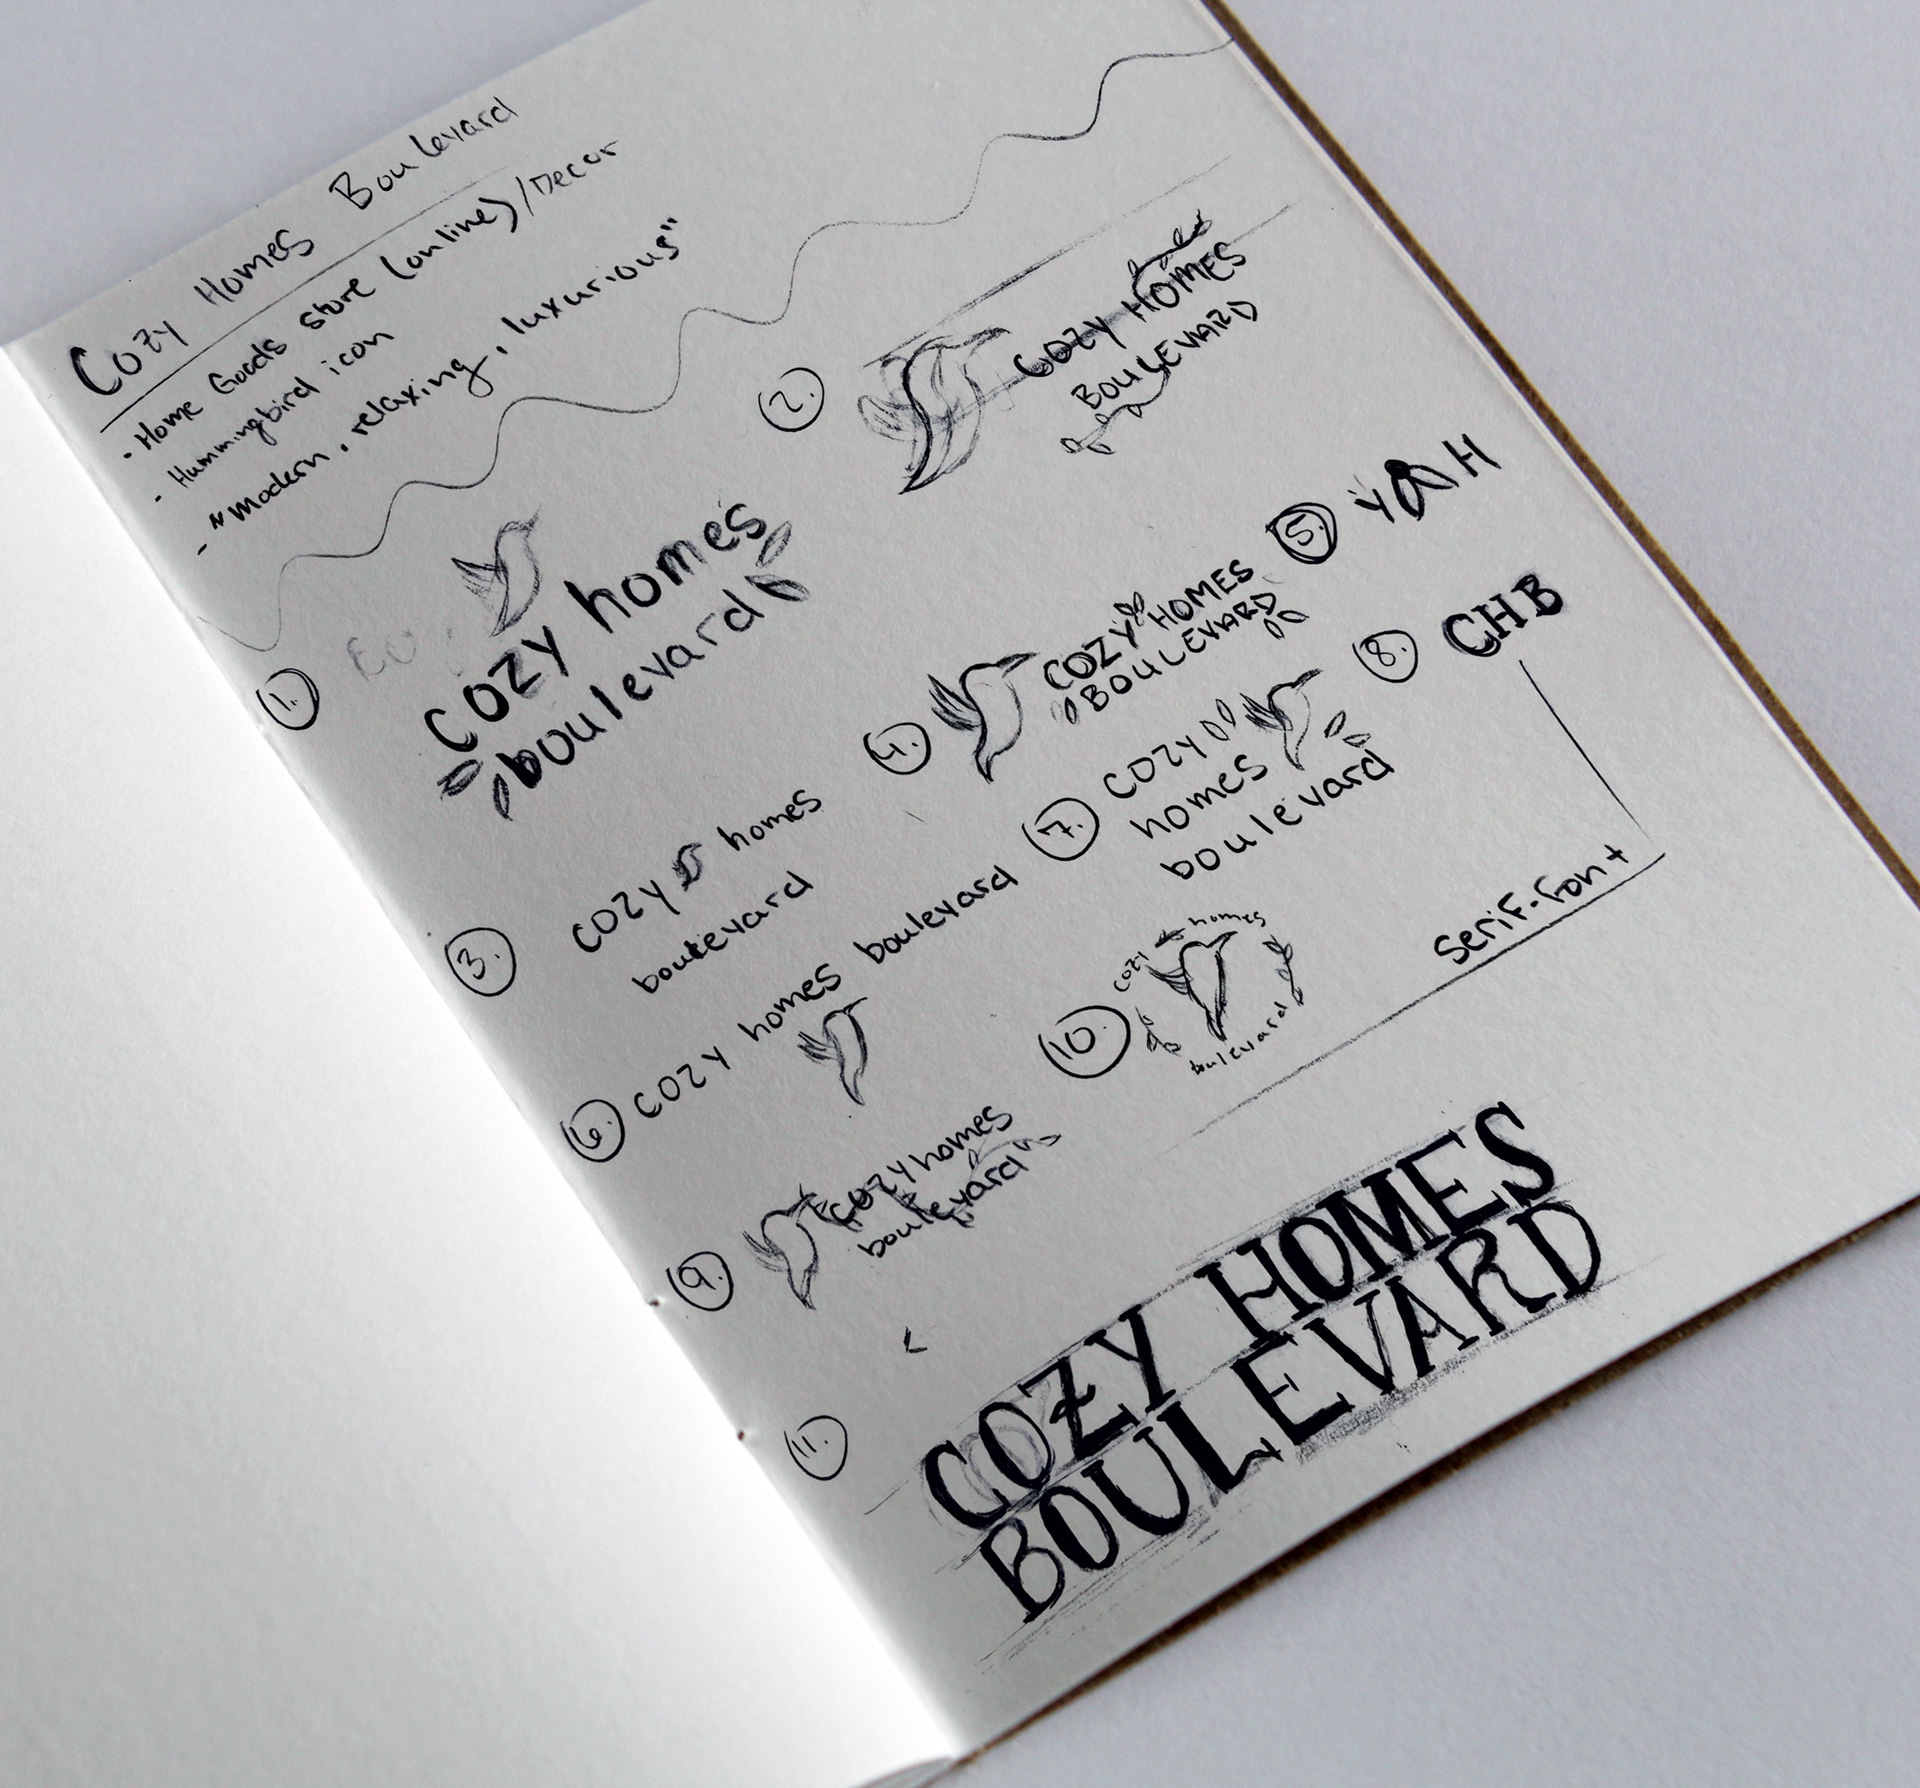 Cozy Homes Boulevard
- Home Goods store (online)/Decor
- Hummingbird icon
- "modern, relaxing, luxurious"
1.
cozy homes
boulevard
2.
COZY HOMES
BOULEVARD
3.
cozy homes
boulevard
4.
COZY HOMES
BOULEVARD
5.
6.
cozy homes boulevard
7.
cozy
homes
boulevard
8.
CHB
serif-font
9.
cozy homes
boulevard
10.
cozy homes
boulevard
11.
COZY HOMES
BOULEVARD